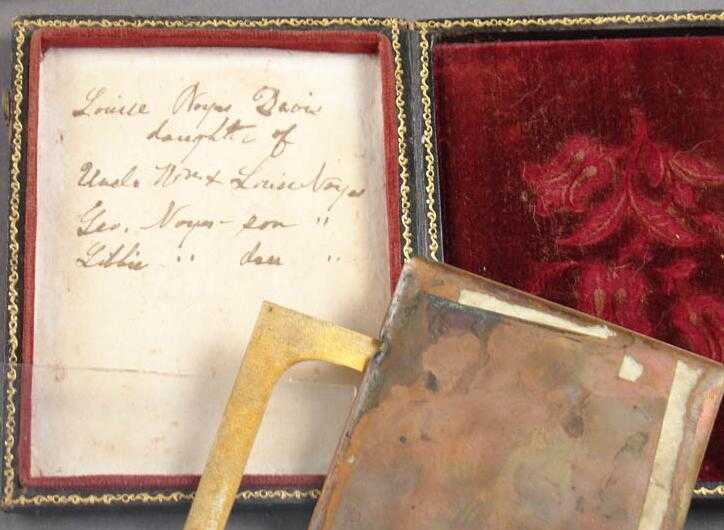 Louise Noyes Davis
daughter of
Uncle Wm & Louise Noyes
Geo. Noyes - son "
Libbie " dau "